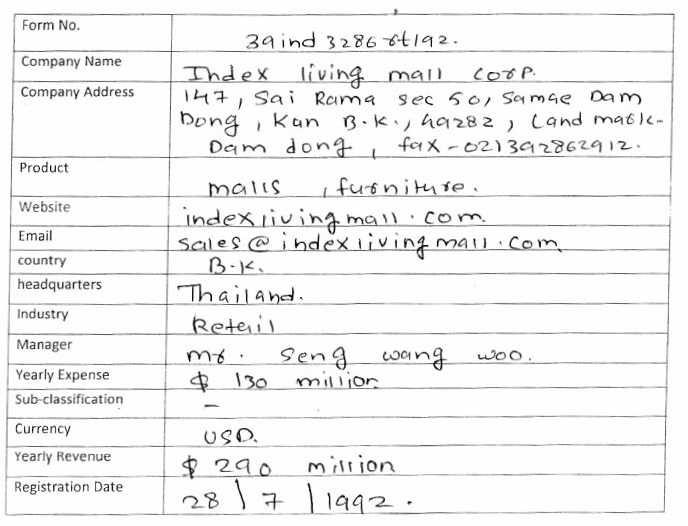 Form No. 39ind 3286 rt192.
Company Name Index living mall corp.
Company Address 147, Sai Rama sec 50, Samae Dam
Dong, Kan B.K., 49282, Land mark-
Dam dong, fax-021392862912.
Product malls, furniture.
Website indexlivingmall.com.
Email sales@indexlivingmall.com
country B.K.
headquarters Thailand.
Industry Retail
Manager mr. Seng wang woo.
Yearly Expense $ 130 million
Sub-classification –
Currency USD.
Yearly Revenue $ 290 million
Registration Date 28/7/1992.